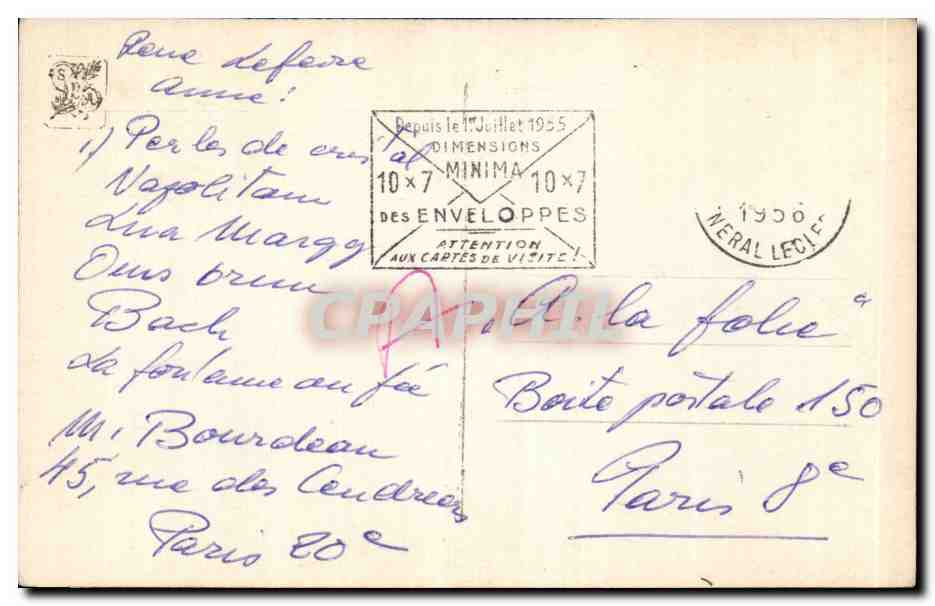 Lefevre
Anne!
1) Perles de cristal
Napolitain
Lua Margy
Ours brun
Bach
La fontaine au fée
M. Bourdeau
45, rue des Cendriers
Paris 20e
Depuis le 1er Juillet 1955
DIMENSIONS
MINIMA
10 x 7 10 x 7
DES ENVELOPPES
ATTENTION
AUX CARTES DE VISITE!
1956
NERAL LECLE
A
CPARHIL
"A la folie"
Boite postale 150
Paris 8e